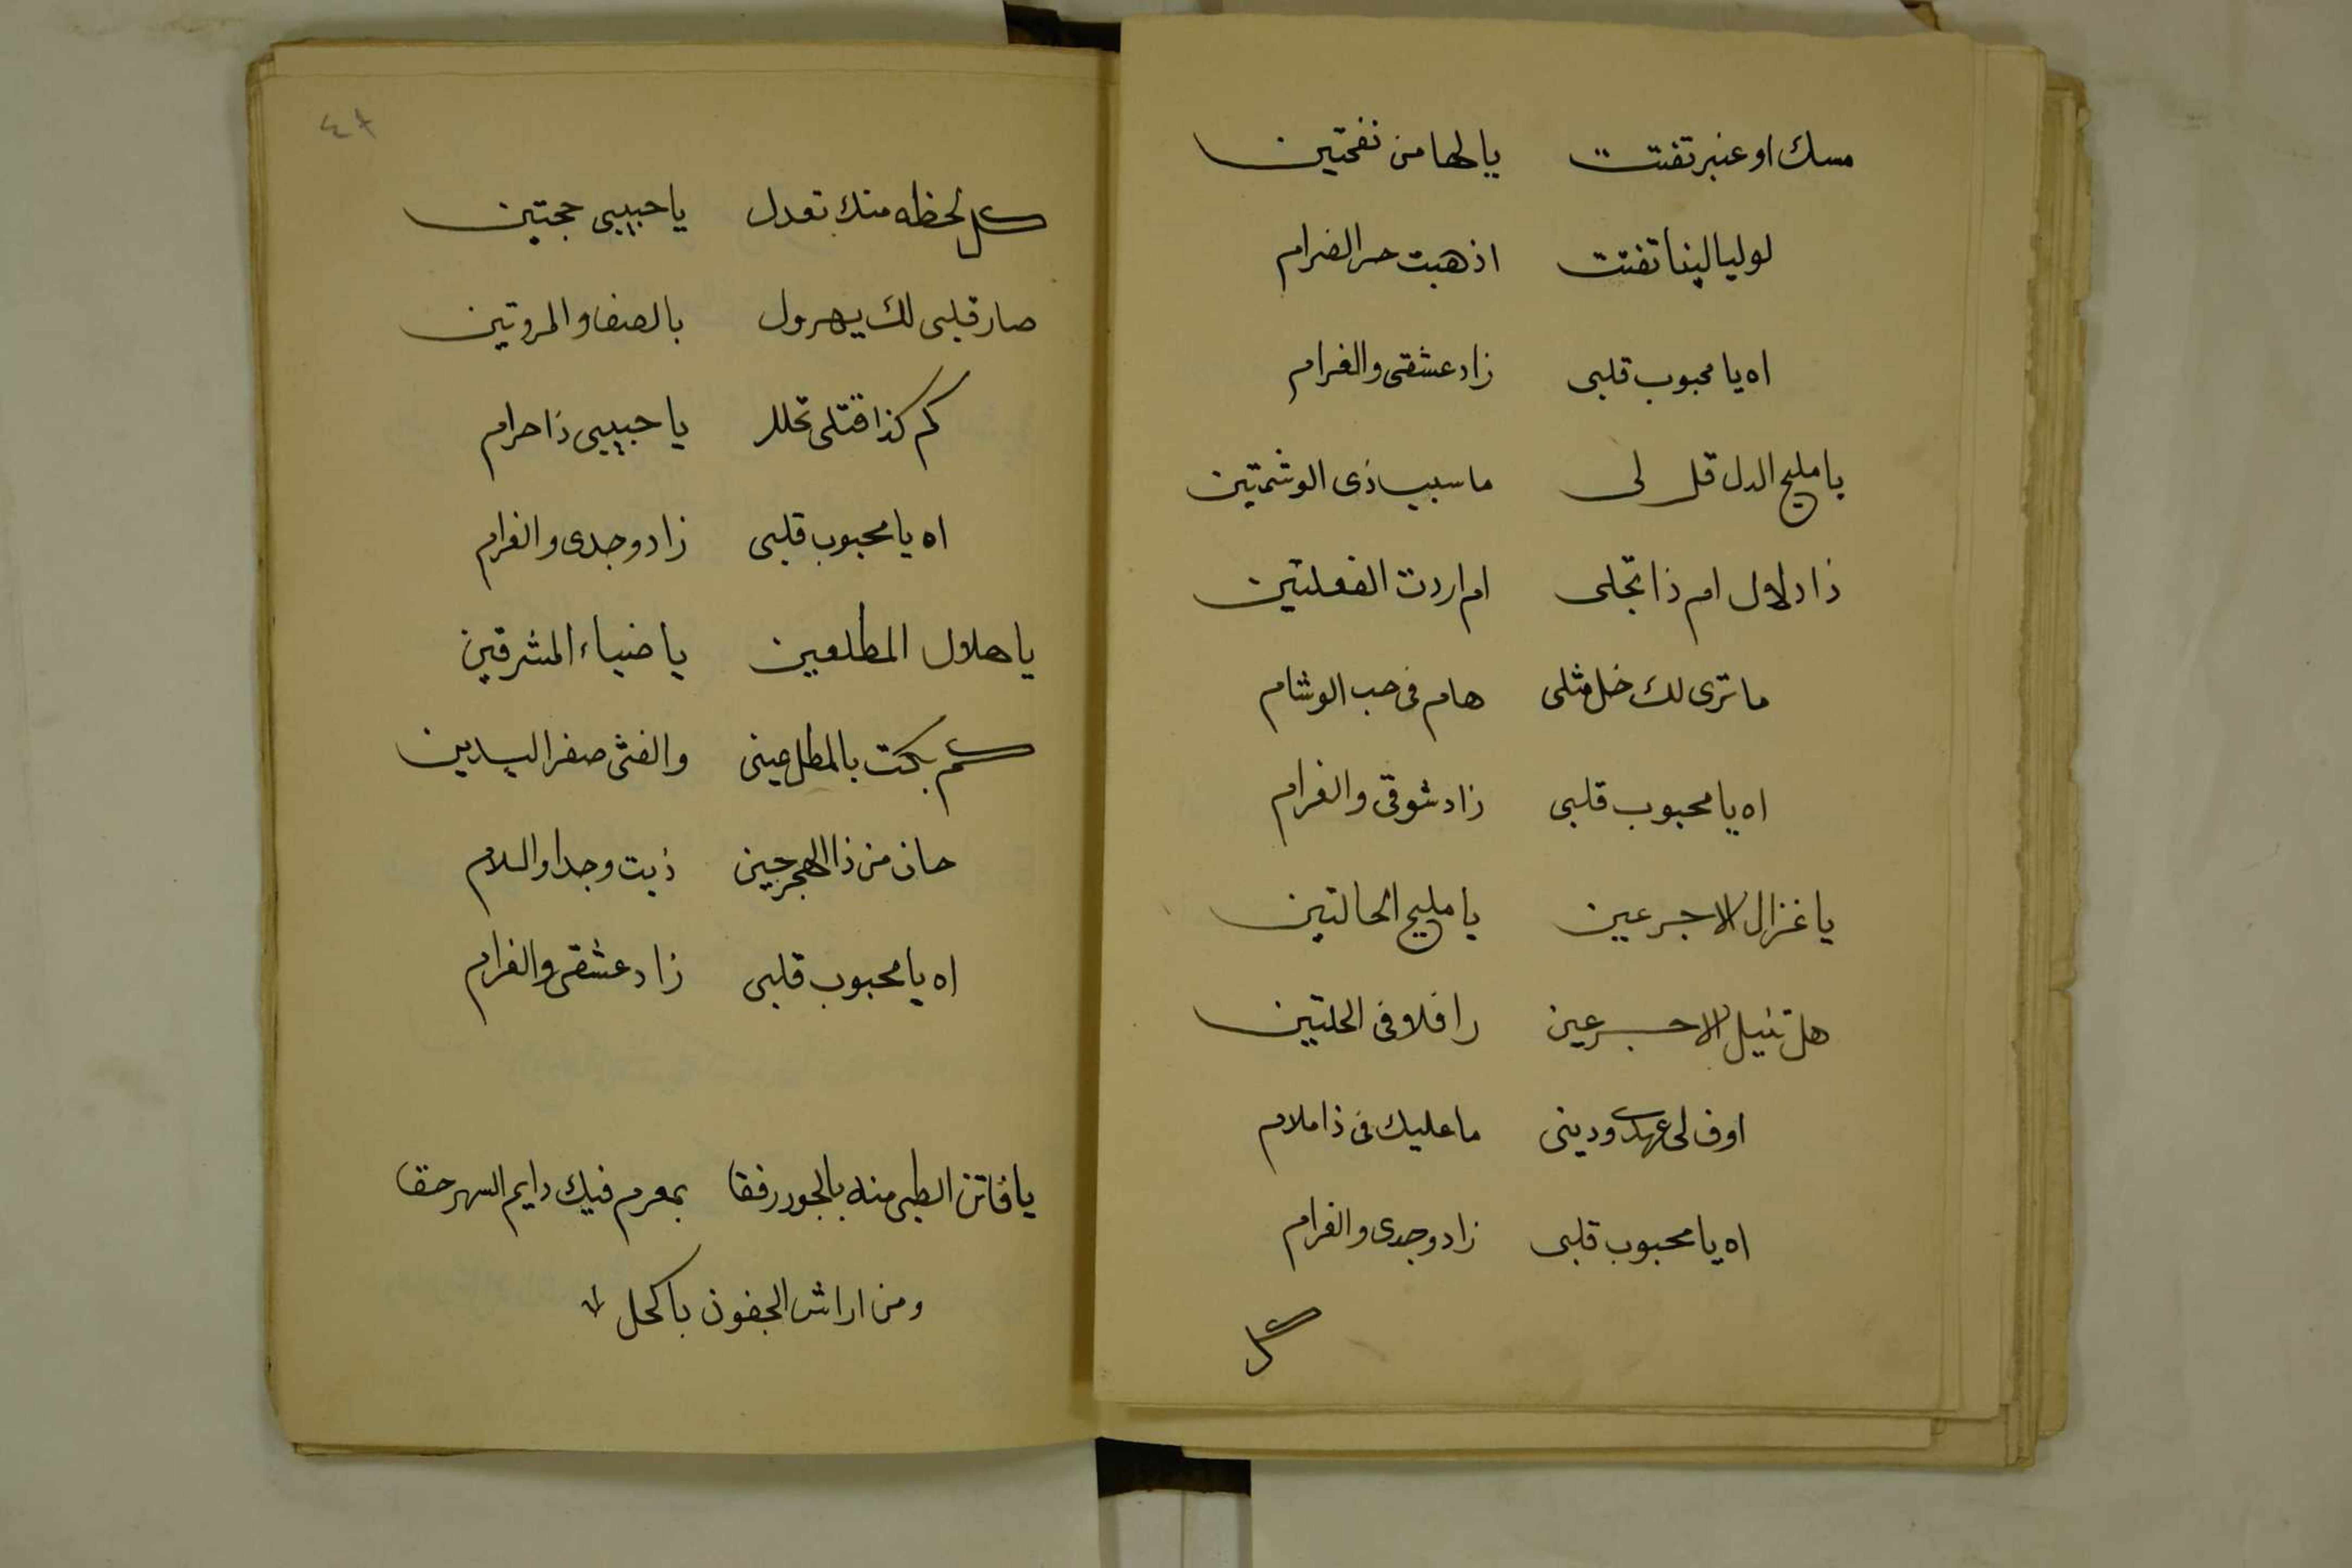 مسك او عنبر تفتت يا لها من نفحتين
لو ليالينا تفتت اذهبت حر الضرام
اه يا محبوب قلبى زاد عشقى والغرام
يا مليح الدل قل لى ما سبب ذى الوشمتين
ذا دلال ام ذا تجلى ام اردت الفعلتين
ما ترى لك خل مثلى هام فى حب الوشام
اه يا محبوب قلبى زاد شوقى والغرام
يا غزال الاجرعين يا مليح الحالتين
هل تنيل الاجرعين رافلا فى الحلتين
اوف لى عهدى ودينى ما عليك فى ذا ملام
اه يا محبوب قلبى زاد وجدى والغرام
كل
٤٨
كل لحظه منك تعدل يا حبيبى حجتين
صار قلبى لك يهرول بالصفا والمروتين
كم كذا قتلى تحلل يا حبيبى ذا حرام
اه يا محبوب قلبى زاد وجدى والغرام
يا هلال المطلعين يا ضياء المشرقين
كم بكت بالمطل عينى والفتى صفر اليدين
حان من ذا الهجر حين ذبت وجدا والسلام
اه يا محبوب قلبى زاد عشقى والغرام
يا فاتن الظبى منه بالجور رفقا بمغرم فيك دايم السهر حقا
ومن اراش الجفون باكحل